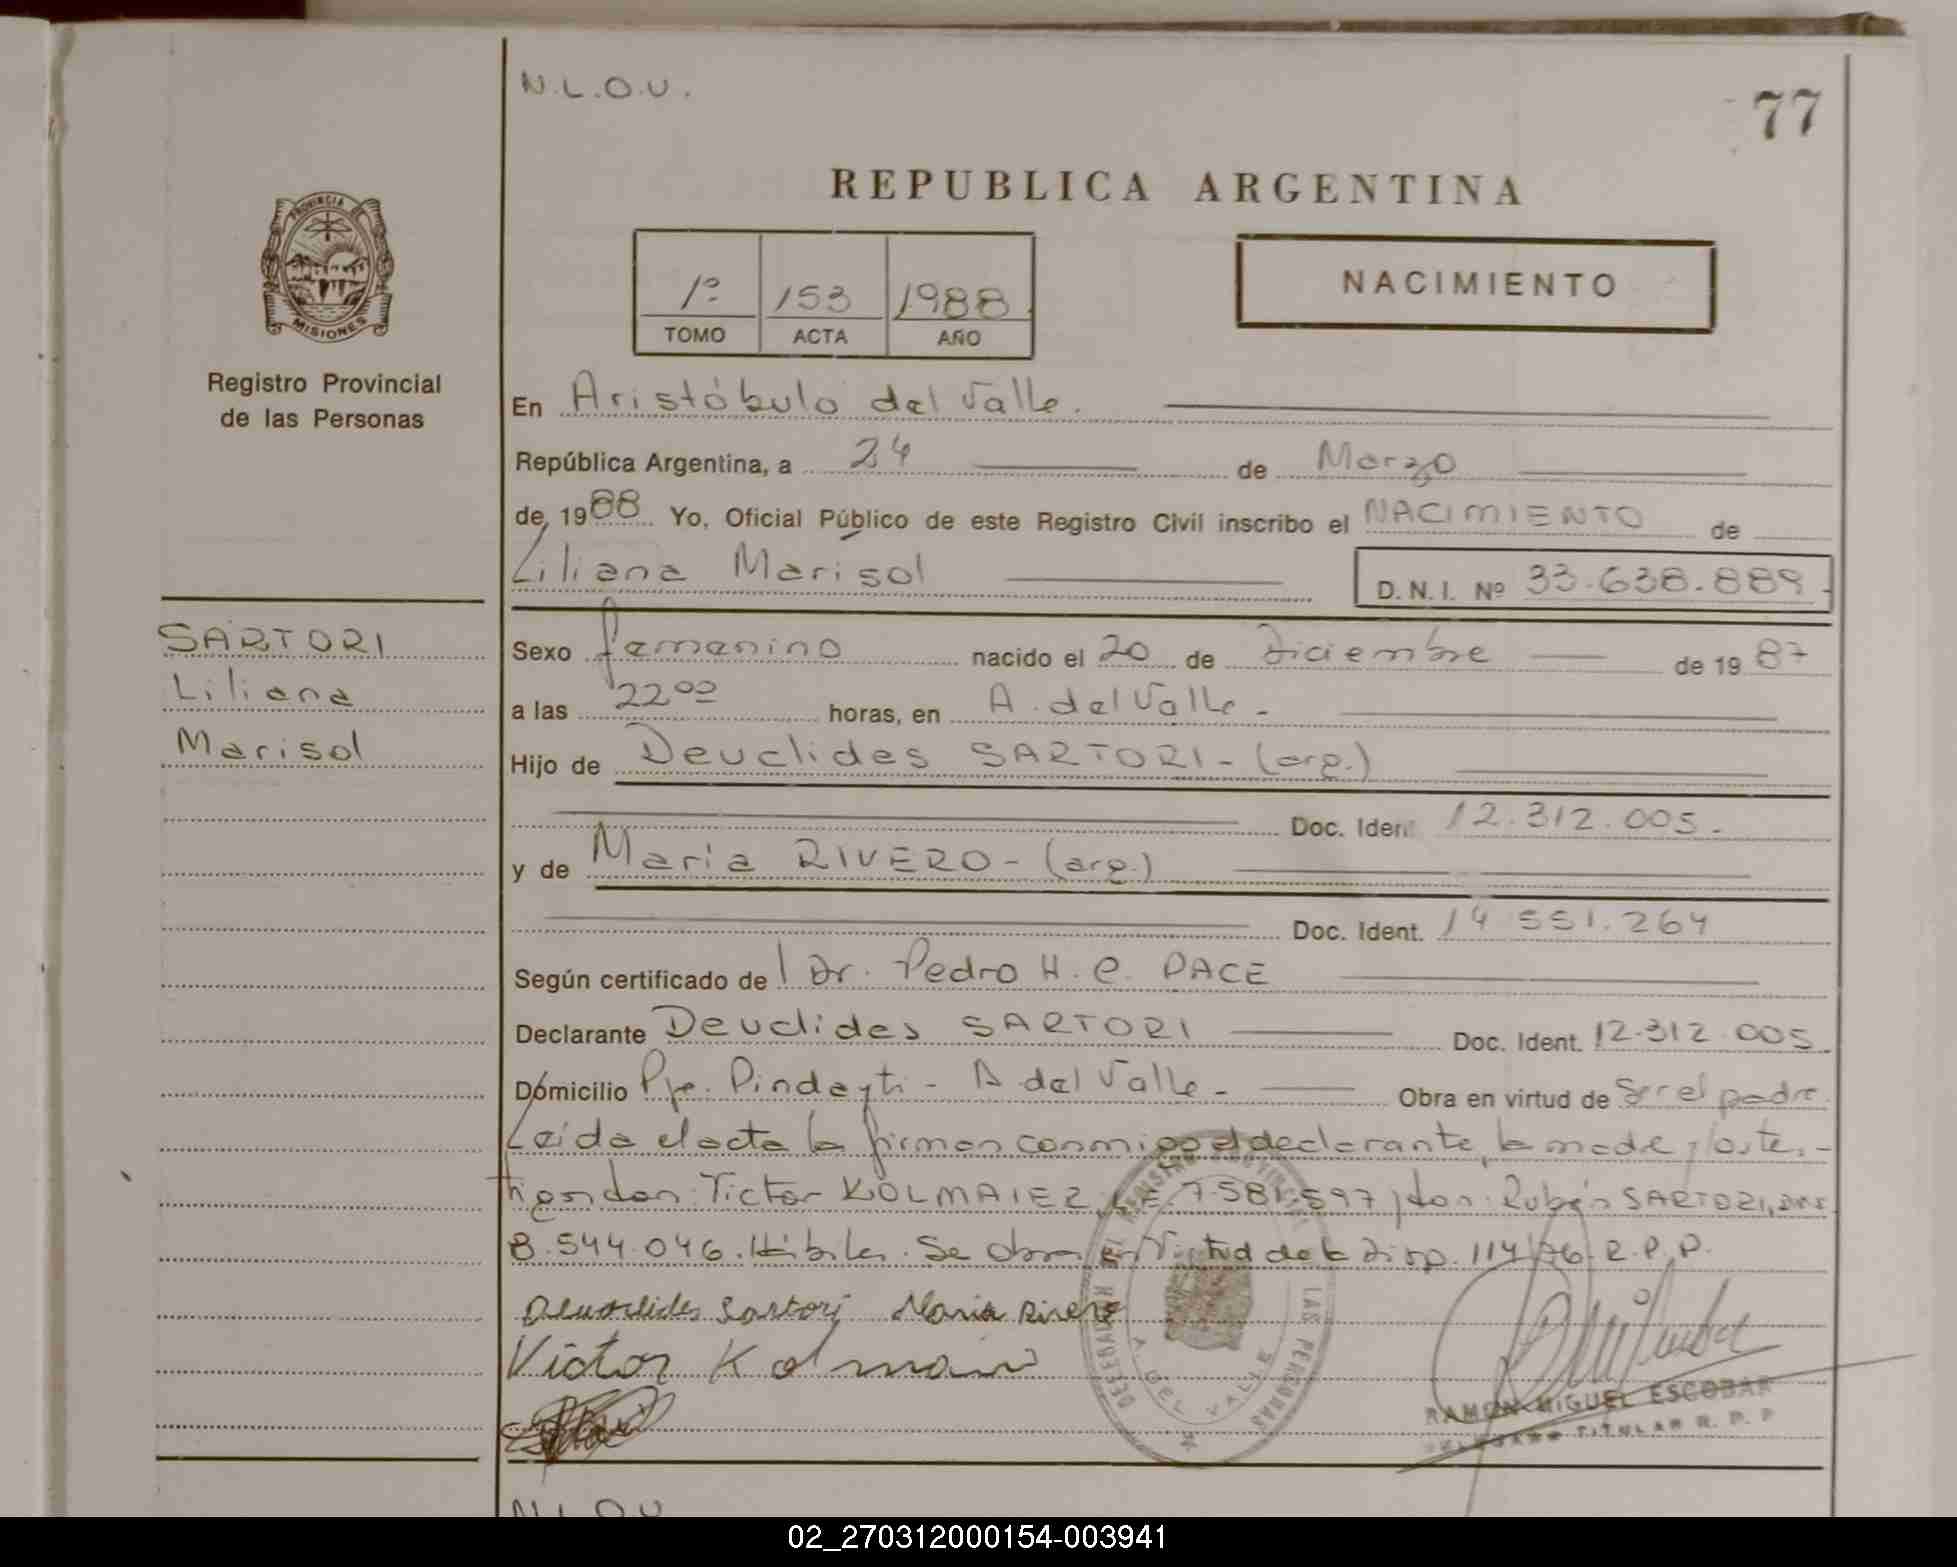 N.L.O.U.
77
REPUBLICA ARGENTINA
PROVINCIA DE
MISIONES
Registro Provincial
de las Personas
1º 153 1988
TOMO ACTA AÑO
NACIMIENTO
En Aristóbulo del Valle.
República Argentina, a 24 de Marzo
de 1988 Yo, Oficial Público de este Registro Civil inscribo el NACIMIENTO de
Liliana Marisol D.N.I. Nº 33.638.889.
SARTORI
Liliana
Marisol
Sexo femenino nacido el 20 de Diciembre de 1987
a las 22 00 horas, en A. del Valle -
Hijo de Deuclides SARTORI - (arg.)
Doc. Ident. 12.312.005.
y de María RIVERO - (arg.)
Doc. Ident. 14.551.264
Según certificado de l Dr. Pedro H. C. PACE
Declarante Deuclides SARTORI Doc. Ident. 12.312.005
Domicilio Pje. Pindayti - A. del Valle - Obra en virtud de ser el padre
Leída el acta la firman conmigo el declarante, la madre y los te.-
tigos don: Victor KOLMAIER, LE. 7.581.597 y don: Rubén SARTORI, DNI
8.544.046. Hábiles. Se obra en Virtud de la Disp. 114/76 R.P.P.
Deuclides Sartori Maria Rivero
Victor Kolmaier
REGISTRO PROVINCIAL
DE LAS PERSONAS
A. DEL VALLE
RAMON MIGUEL ESCOBAR
TITULAR R. P. P.
N.L.O.U.
02_270312000154-003941